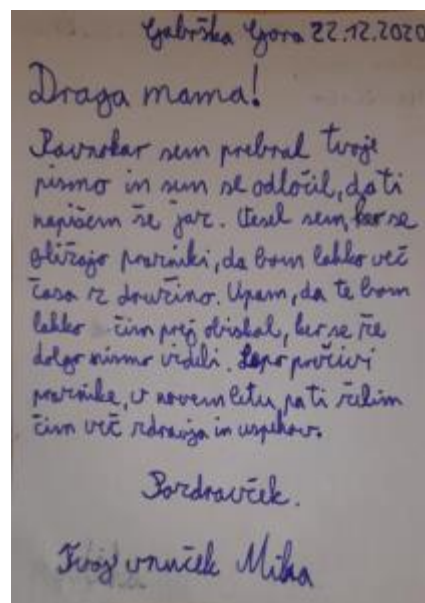 Gabrška Gora 22.12.2020
Draga mama!
Ravnokar sem prebral tvoje
pismo in sem se odločil, da ti
napišem še jaz. Vesel sem, ker se
bližajo prazniki, da bom lahko več
časa z družino. Upam, da te bom
lahko čim prej obiskal, ker se že
dolgo nismo videli. Lepo preživi
praznike, v novem letu pa ti želim
čim več zdravja in uspehov.
Pozdravček.
Tvoj vnuček Miha